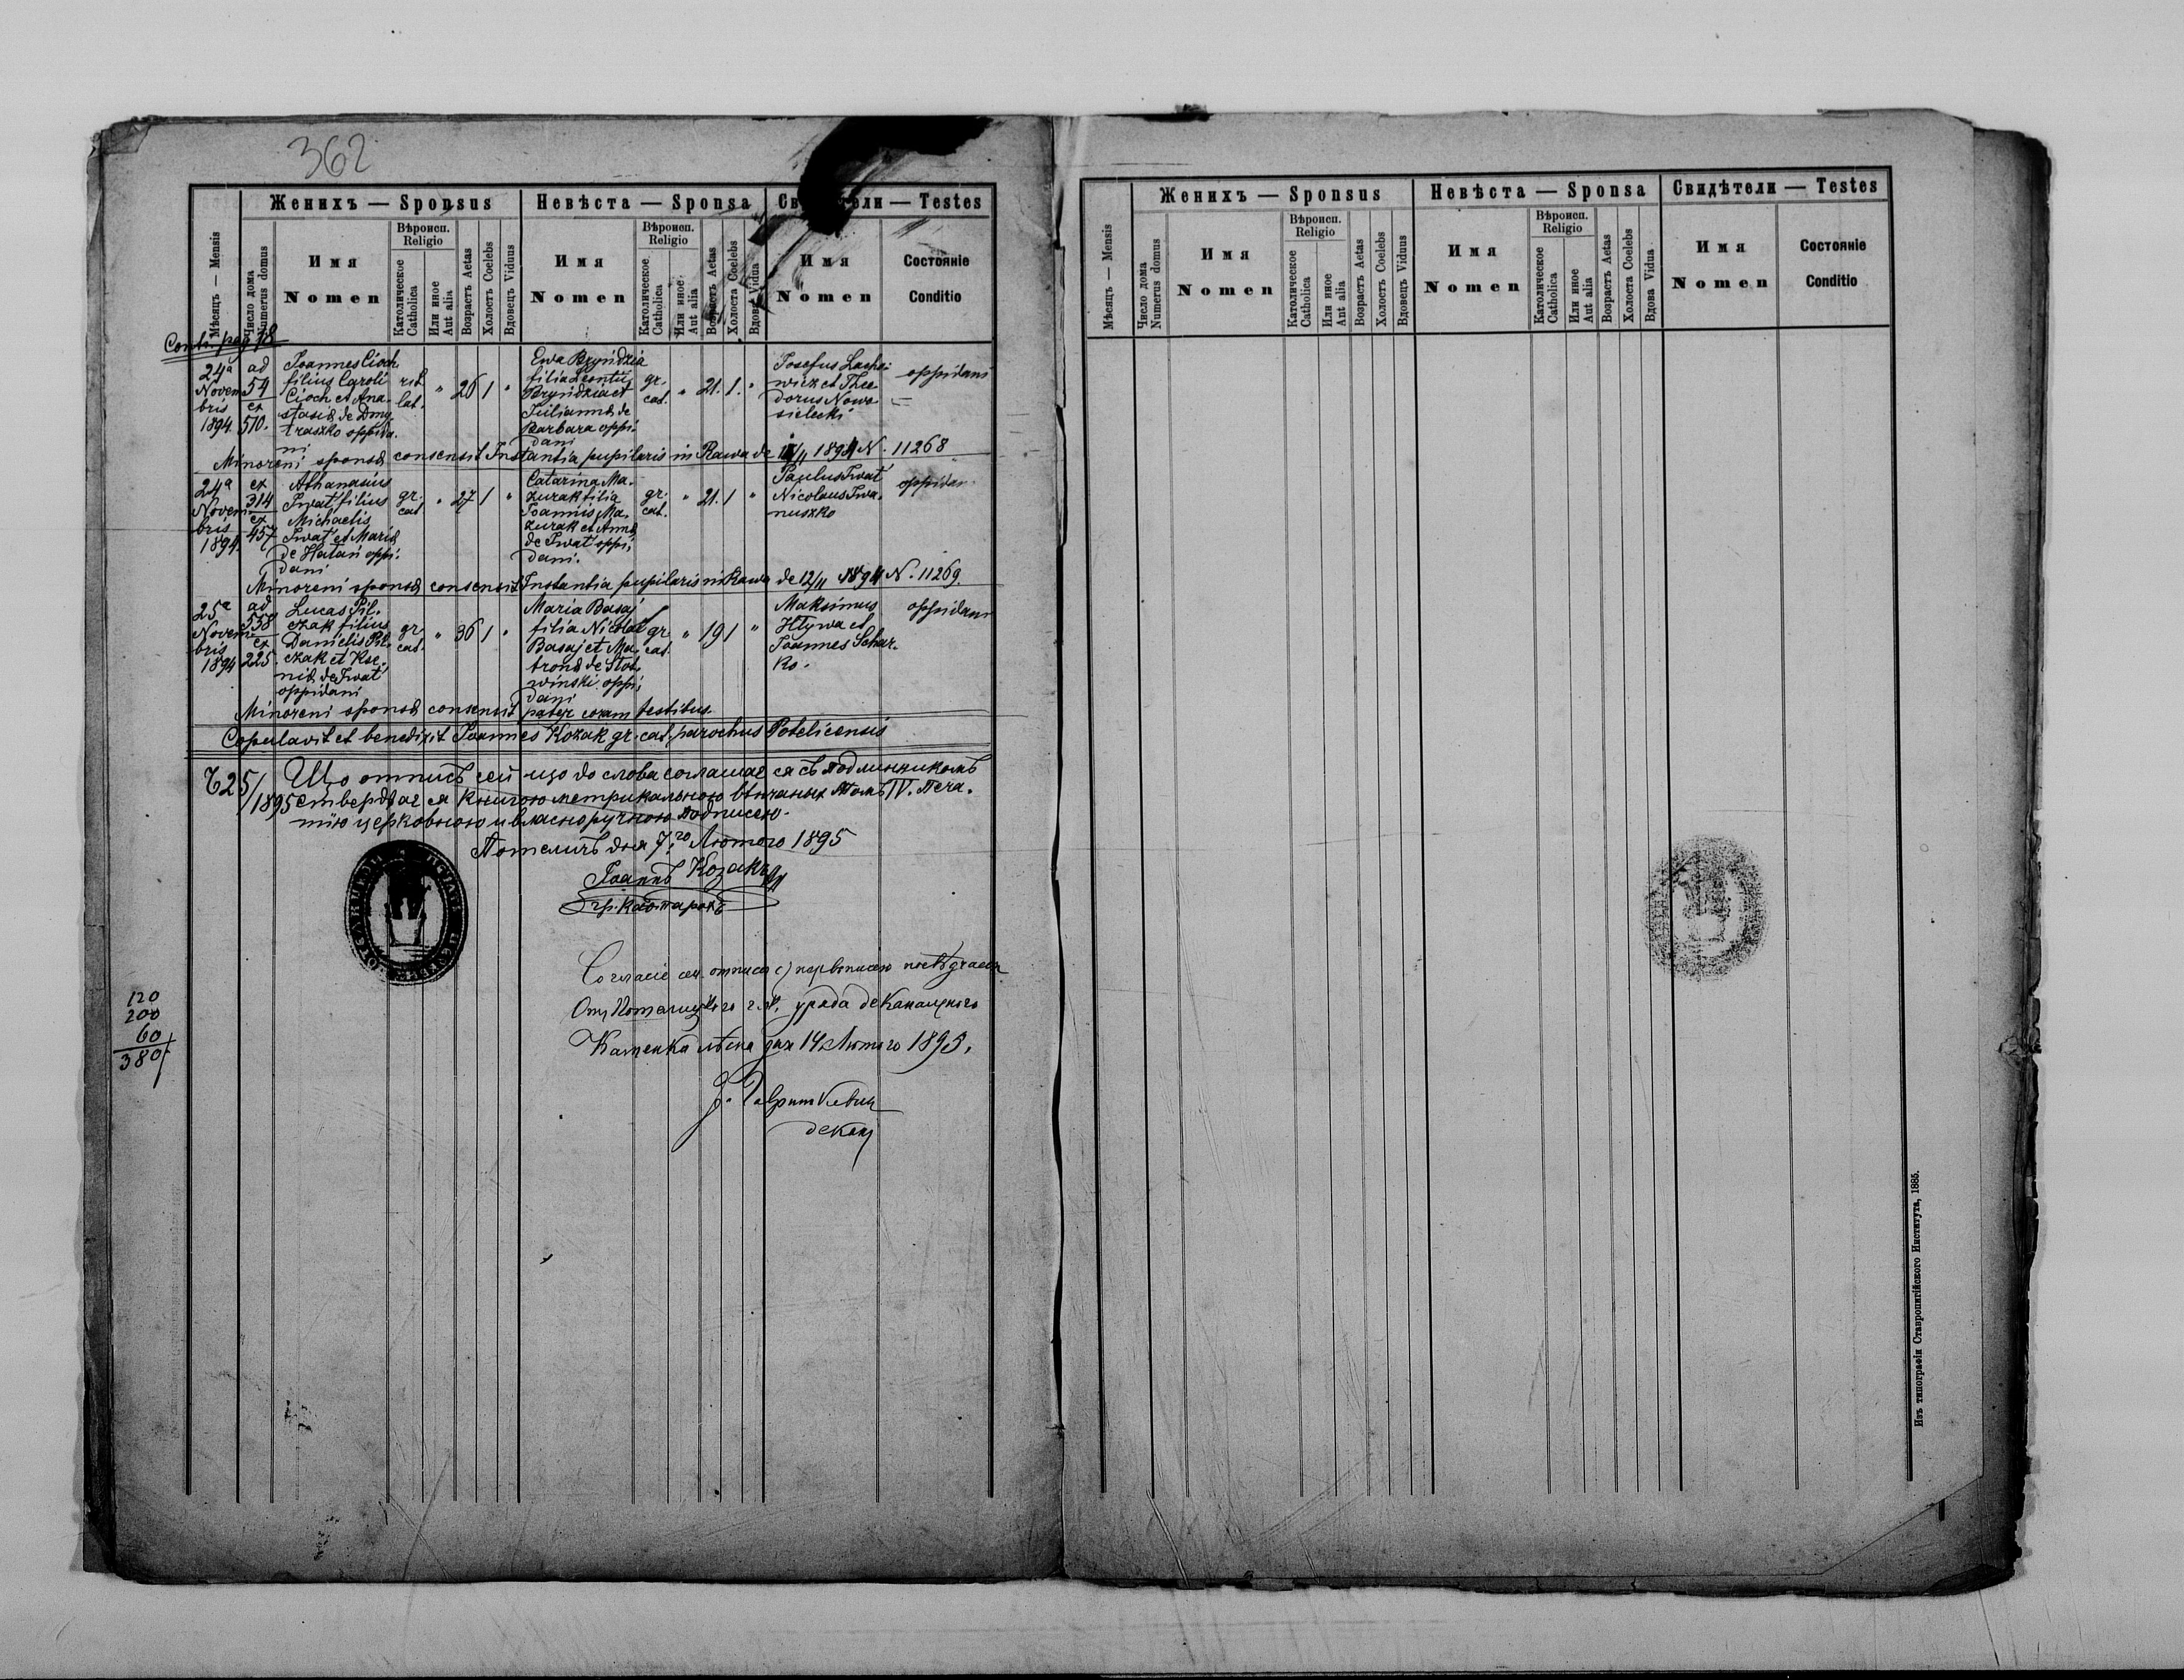 362
Женихъ — Sponsus
Невѣста — Sponsa
Свидѣтели — Testes
Мѣсяцъ — Mensis
Число дома
Numerus domus
Имя
Nomen
Вѣроисп.
Religio
Католическое
Catholica
Или иное
Aut alia
Возрастъ Aetas
Холостъ Coelebs
Вдовецъ Viduus
Имя
Nomen
Вѣроисп.
Religio
Католическое
Catholica
Или иное
Aut alia
Возрастъ Aetas
Холоста Coelebs
Вдова Vidua
Имя
Nomen
Состояніе
Conditio
Conti. pag 18
24ª
Novem
bris
1894.
ad
54
ex
510.
Joannes Cioch
filius Caroli
Cioch et Ana-
stasiæ de Dmy
traszko oppida-
ni
rit.
lat.
" 26 1 "
Ewa Bryndzia
filia Leontii
Bryndzia et
Julianna de
Barbara oppi-
dani
gr.
cat.
" 21. 1. "
Josefus Lache-
wicz et Theo-
dorus Nowo-
sielecki
oppidani
Minoreni sponsæ consensit Instantia pupilaris in Rawa de 1894 N. 11268
24ª
Novem
bris
1894.
ex
314
ex
457
Athanasius
Iwat filius
Michaelis
Iwat et Mariæ
de Hatan oppi-
dani
gr.
cat
" 27 1 "
Catarina Ma-
zurak filia
Joannis Ma-
zurak et Annæ
de Iwat oppi-
dani.
gr.
cat.
" 21. 1 "
Paulus Iwat
Nicolaus Iwa-
nuszko
oppidan
Minoreni sponsæ consensit Instantia pupilaris in Rawa de 12/11 1894 N. 11269.
25ª
Novem
bris
1894
ad
558
ex
225.
Lucas Pil-
czak filius
Danielis Pil-
czak et Kse-
niæ de Iwat
oppidani
gr.
cat.
" 36 1 "
Maria Basaj
filia Nicolai
Basaj et Ma-
tronæ de Stot-
winski oppi-
dani
gr.
cat.
" 19 1 "
Maksimus
Hlywa et
Joannes Schar-
ko.
oppidani
Minoreni sponsæ consensit pater coram testibus.
Copulavit et benedixit Joannes Kozak gr. cat. parochus Potelicensis
Ч 25/1895
Що отписъ сей що до слова соглашає ся съ подлинникомъ
стверджає ся Книгою метрикальною вѣнчаныхъ Томъ IV. Печа-
тію церковною и власноручною подписею.
Потеличъ дня 7.го Лютого 1895
Іоаннъ Козакъ
гр. кат. парохъ
Согласіе сей отписи съ первописею посвѣдчаєт
От Потелицкого г.к. уряда деканацкого
Каменка лѣсна дня 14 Лютого 1895.
декан
120
200
60
380
Женихъ — Sponsus
Невѣста — Sponsa
Свидѣтели — Testes
Мѣсяцъ — Mensis
Число дома
Numerus domus
Имя
Nomen
Вѣроисп.
Religio
Католическое
Catholica
Или иное
Aut alia
Возрастъ Aetas
Холостъ Coelebs
Вдовецъ Viduus
Имя
Nomen
Вѣроисп.
Religio
Католическое
Catholica
Или иное
Aut alia
Возрастъ Aetas
Холоста Coelebs
Вдова Vidua
Имя
Nomen
Состояніе
Conditio
Изъ типографіи Ставропигійского Института, 1885.